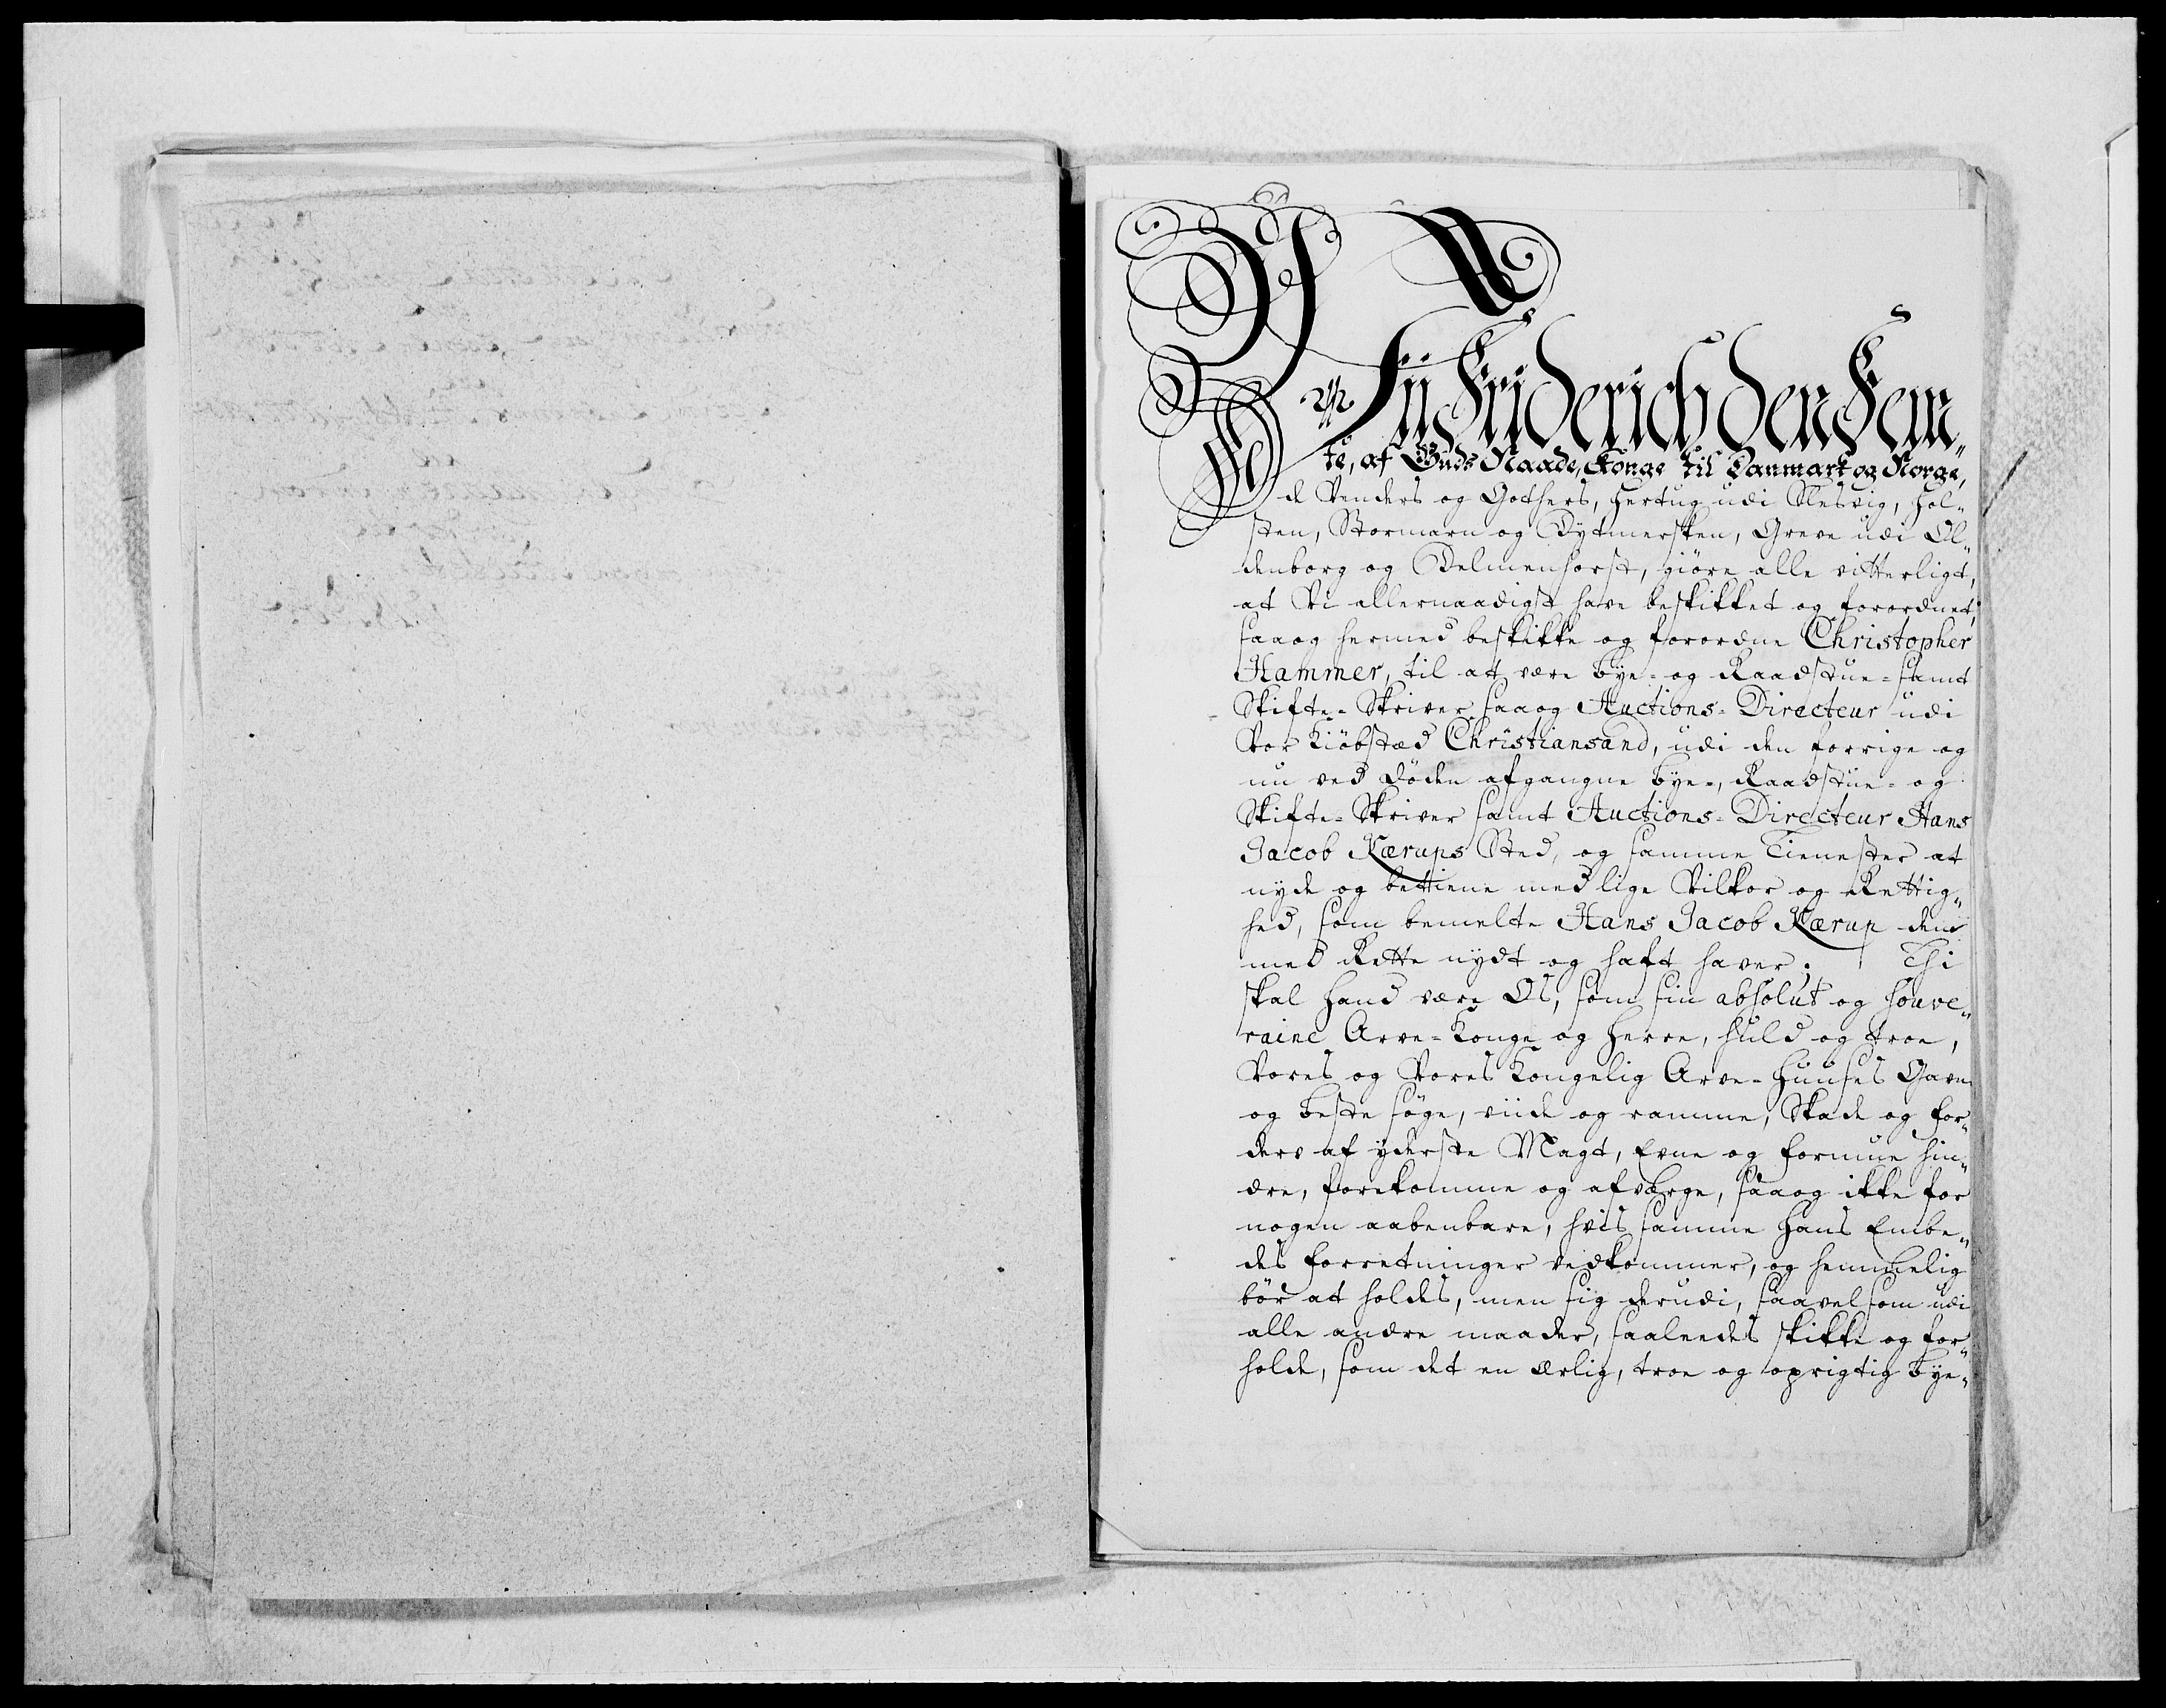 Wii Friderich den Fem„
te, af Guds Naade, Konge til Danmark og Norge,
de Venders og Gothers, Hertug udi Slesvig, Hol„
sten, Stormarn og Dytmersken, Greve udi Ol„
denborg og Delmenhorst, giöre alle vitterligt,
at Vi allernaadigst have beskikket og forordnet,
saaog hermed beskikke og forordne Christopher
Hammer, til at være Bye- og Raadstue- samt
Skifte-Skriver saaog Auctions-Directeur udi
Vor Kiöbstæd Christiansand, udi den forrige og
nu ved Döden afgangne Bye-, Raadstue- og
Skifte-Skriver samt Auctions-Directeur Hans
Jacob Kærups Sted, og samme Tienester at
nyde og bettiene med lige Vilkor og Rettig„
hed, som bemelte Hans Jacob Kærup dem
med Rette nydt og haft haver. Thi
skal hand være Os, som sin absolut og souve„
raine Arve-Konge og Herre, huld og troe,
Vores og Vores Kongelig Arve-Huuses Gavn
og beste söge, viide og ramme, Skade og For„
derv af yderste Magt, Evne og Formue hin„
dre, forekomme og afværge, saaog ikke for
nogen aabenbare, hvis samme hans Embe„
des Forretninger vedkommer, og hemmelig
bör at holdes, men sig derudi, saavelsom udi
alle andre maader, saaleedes skikke og for„
holde, som det en ærlig, troe og oprigtig Bye„